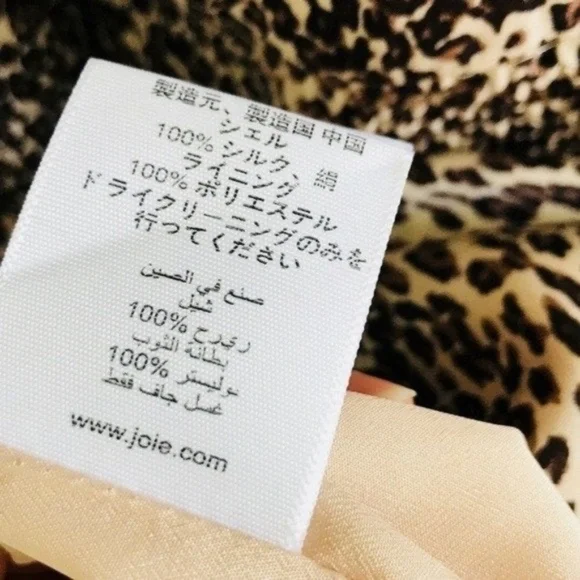 製造元、製造国 中国
シェル
100% シルク、絹
ライニング
100% ポリエステル
ドライクリーニングのみを
行ってください
صنع في الصين
شيل
100% ريرح
بطانة الثوب
100% بوليستر
غسل جاف فقط
www.joie.com